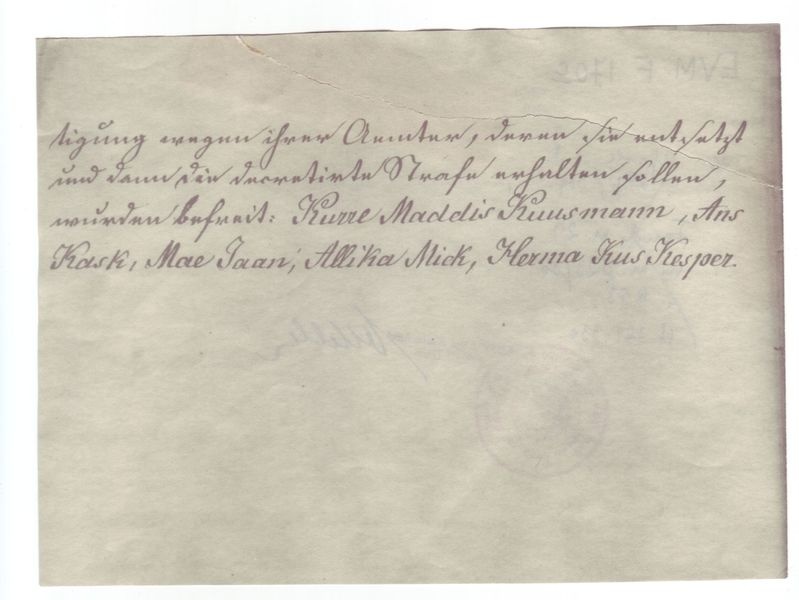 EVM F 1102
tigung wegen ihrer Aemter, deren sie entsetzt
und dann die decretirte Strafe erhalten sollen,
wurden befreit: Kurre Maddis Kuusmann, Ans
Kask, Mae Jaan, Allika Mick, Herma Kus Kesper.